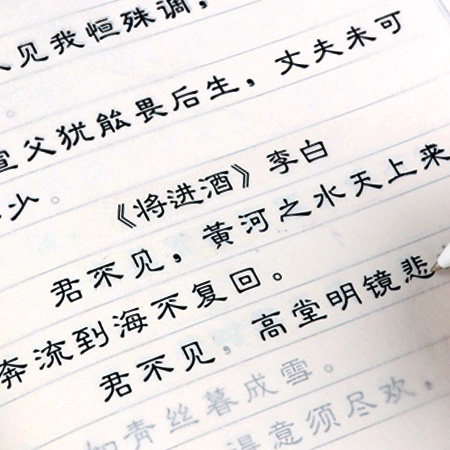 见我恒殊调，
宣父犹能畏后生，丈夫未可
少。
《将进酒》李白
君不见，黄河之水天上来
奔流到海不复回。
君不见，高堂明镜悲
如青丝暮成雪。
得意须尽欢，